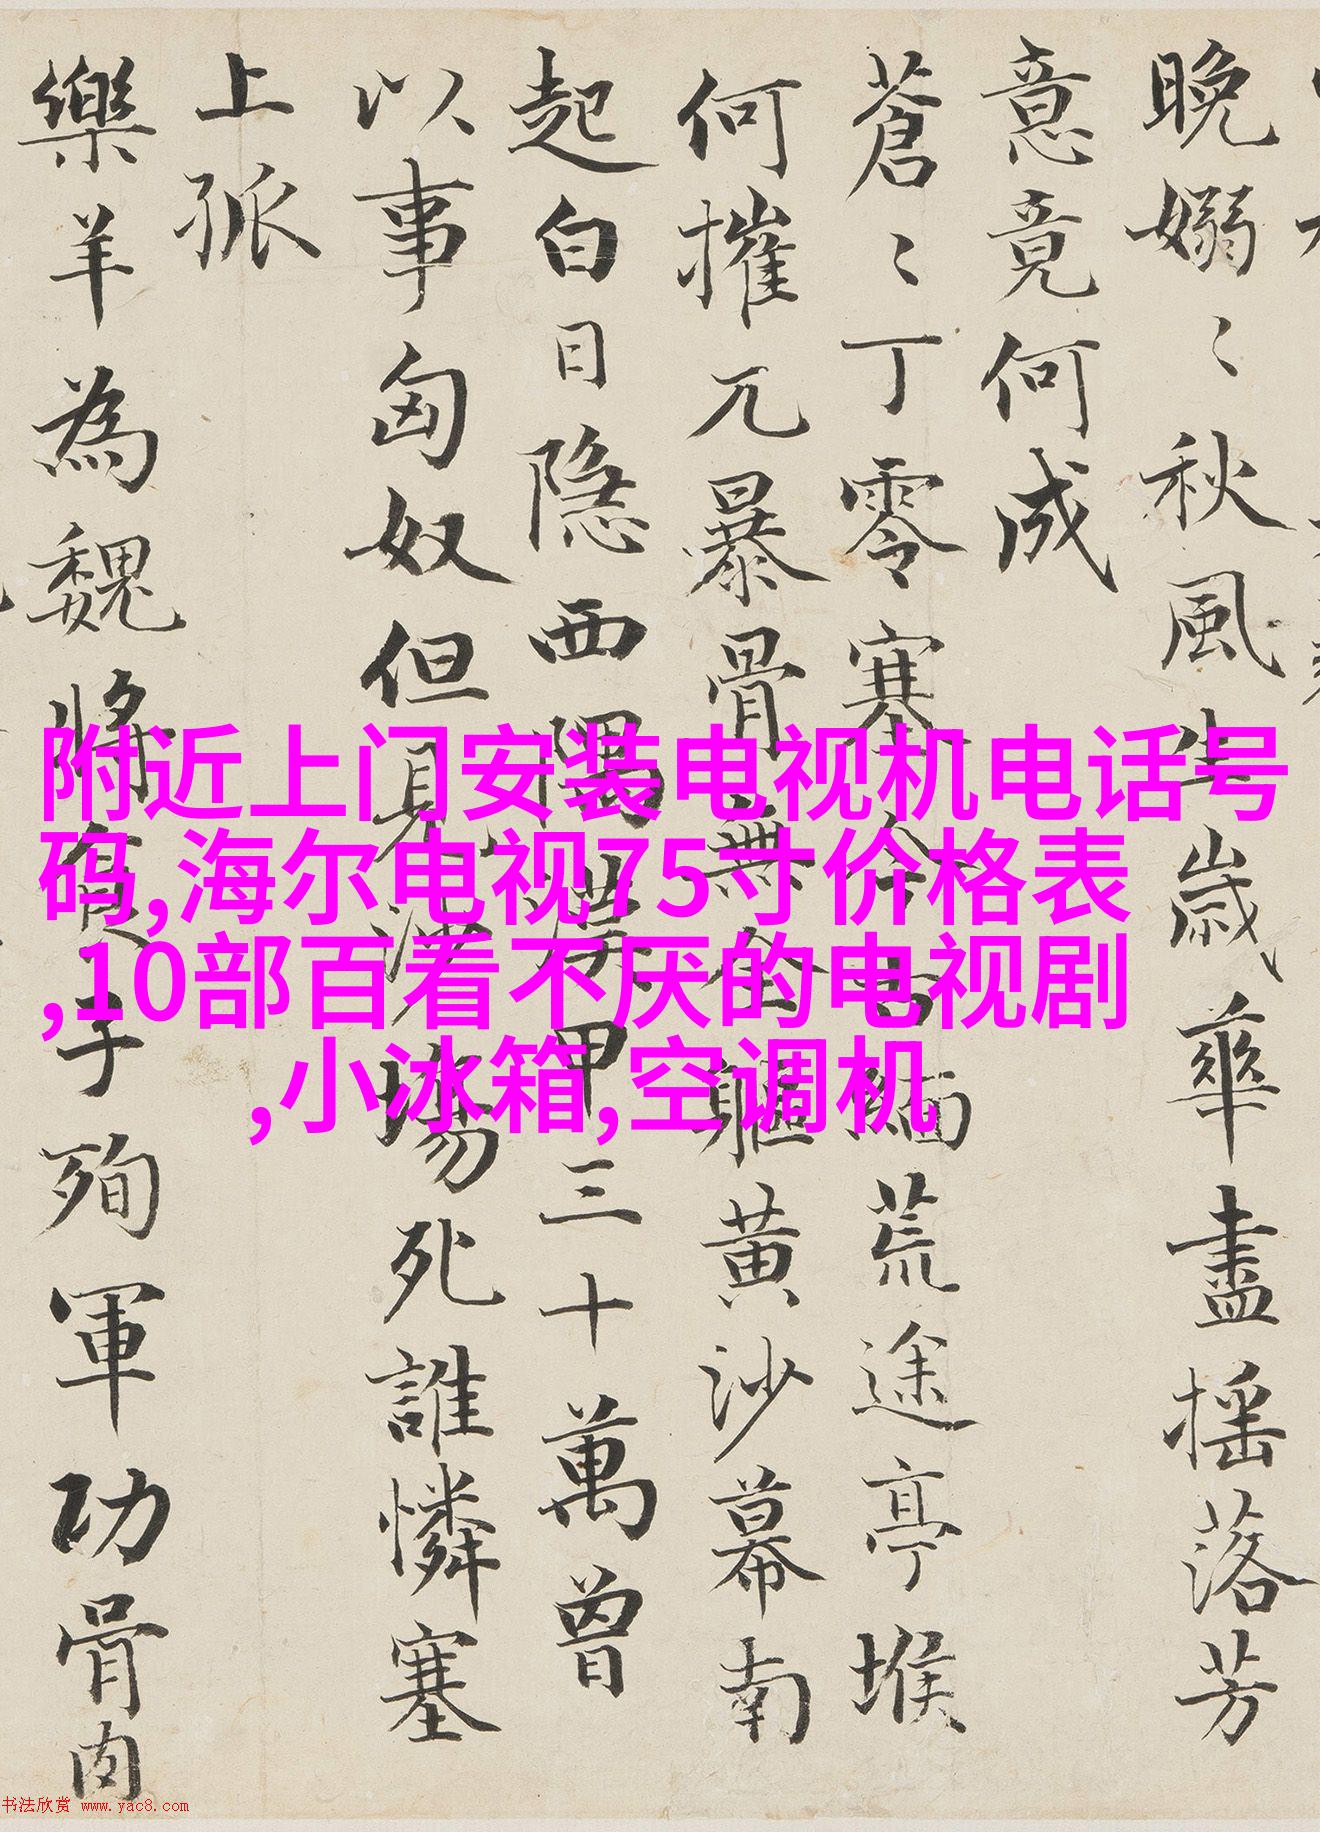 晚嫋〻秋風生歲華盡摇落芳
意竟何成
蒼〻丁零塞今古緬荒途亭堠
何摧兀暴骨無全軀黄沙幕南
起白日隐西隅漢甲三十萬曾
以事匈奴但見沙場死誰憐塞
上孤
樂羊為魏將食子殉軍功骨肉
附近上门安装电视机电话号
码,海尔电视75寸价格表
,10部百看不厌的电视剧
,小冰箱,空调机
书法欣赏 www.yac8.com